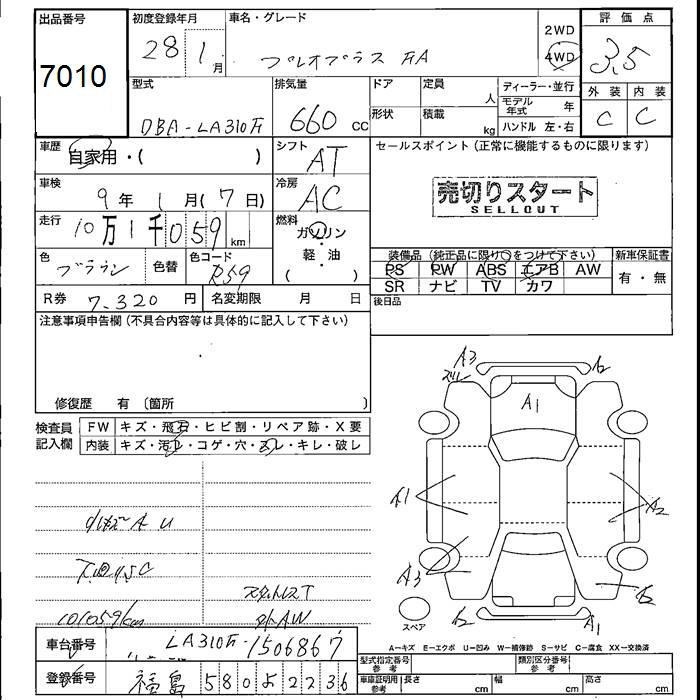 出品番号
7010
初度登録年月
28年 1月
車名・グレード
プレオプラス FA
2WD
4WD
評価点
3.5
外装 内装
C C
型式
DBA-LA310F
排気量
660 cc
ドア
形状
定員 人
積載 kg
ディーラー・並行
モデル年式 年
ハンドル 左・右
車歴
自家用・( )
シフト
AT
車検
9年 1月(7日)
冷房
AC
走行
10万1千059 km
燃料
ガソリン
軽・油
( )
色
ブラウン
色替
色コード
R59
R券 7,320円
名変期限 月 日
セールスポイント(正常に機能するものに限ります)
売切りスタート
SELLOUT
装備品(純正品に限り○をつけて下さい)
PS PW ABS エアB AW
SR ナビ TV カワ
新車保証書
有・無
後日品
注意事項申告欄(不具合内容等は具体的に記入して下さい)
修復歴 有〔箇所 〕
検査員記入欄
FW キズ・飛石・ヒビ割・リペア跡・X要
内装 キズ・汚れ・コゲ・穴・スレ・キレ・破レ
A3
A2
A1
A1
A2
A3
A2
A1
スペア
101059km
スタッドレスT
外AW
A-キズ E-エクボ U-凹み W-補修跡 S-サビ C-腐食 XX-交換済
車台番号 LA310F-1506867
登録番号 福島 580 2236
型式指定番号 参考
類別区分番号 参考
車庫証明用 参考
長さ cm
幅 cm
高さ cm